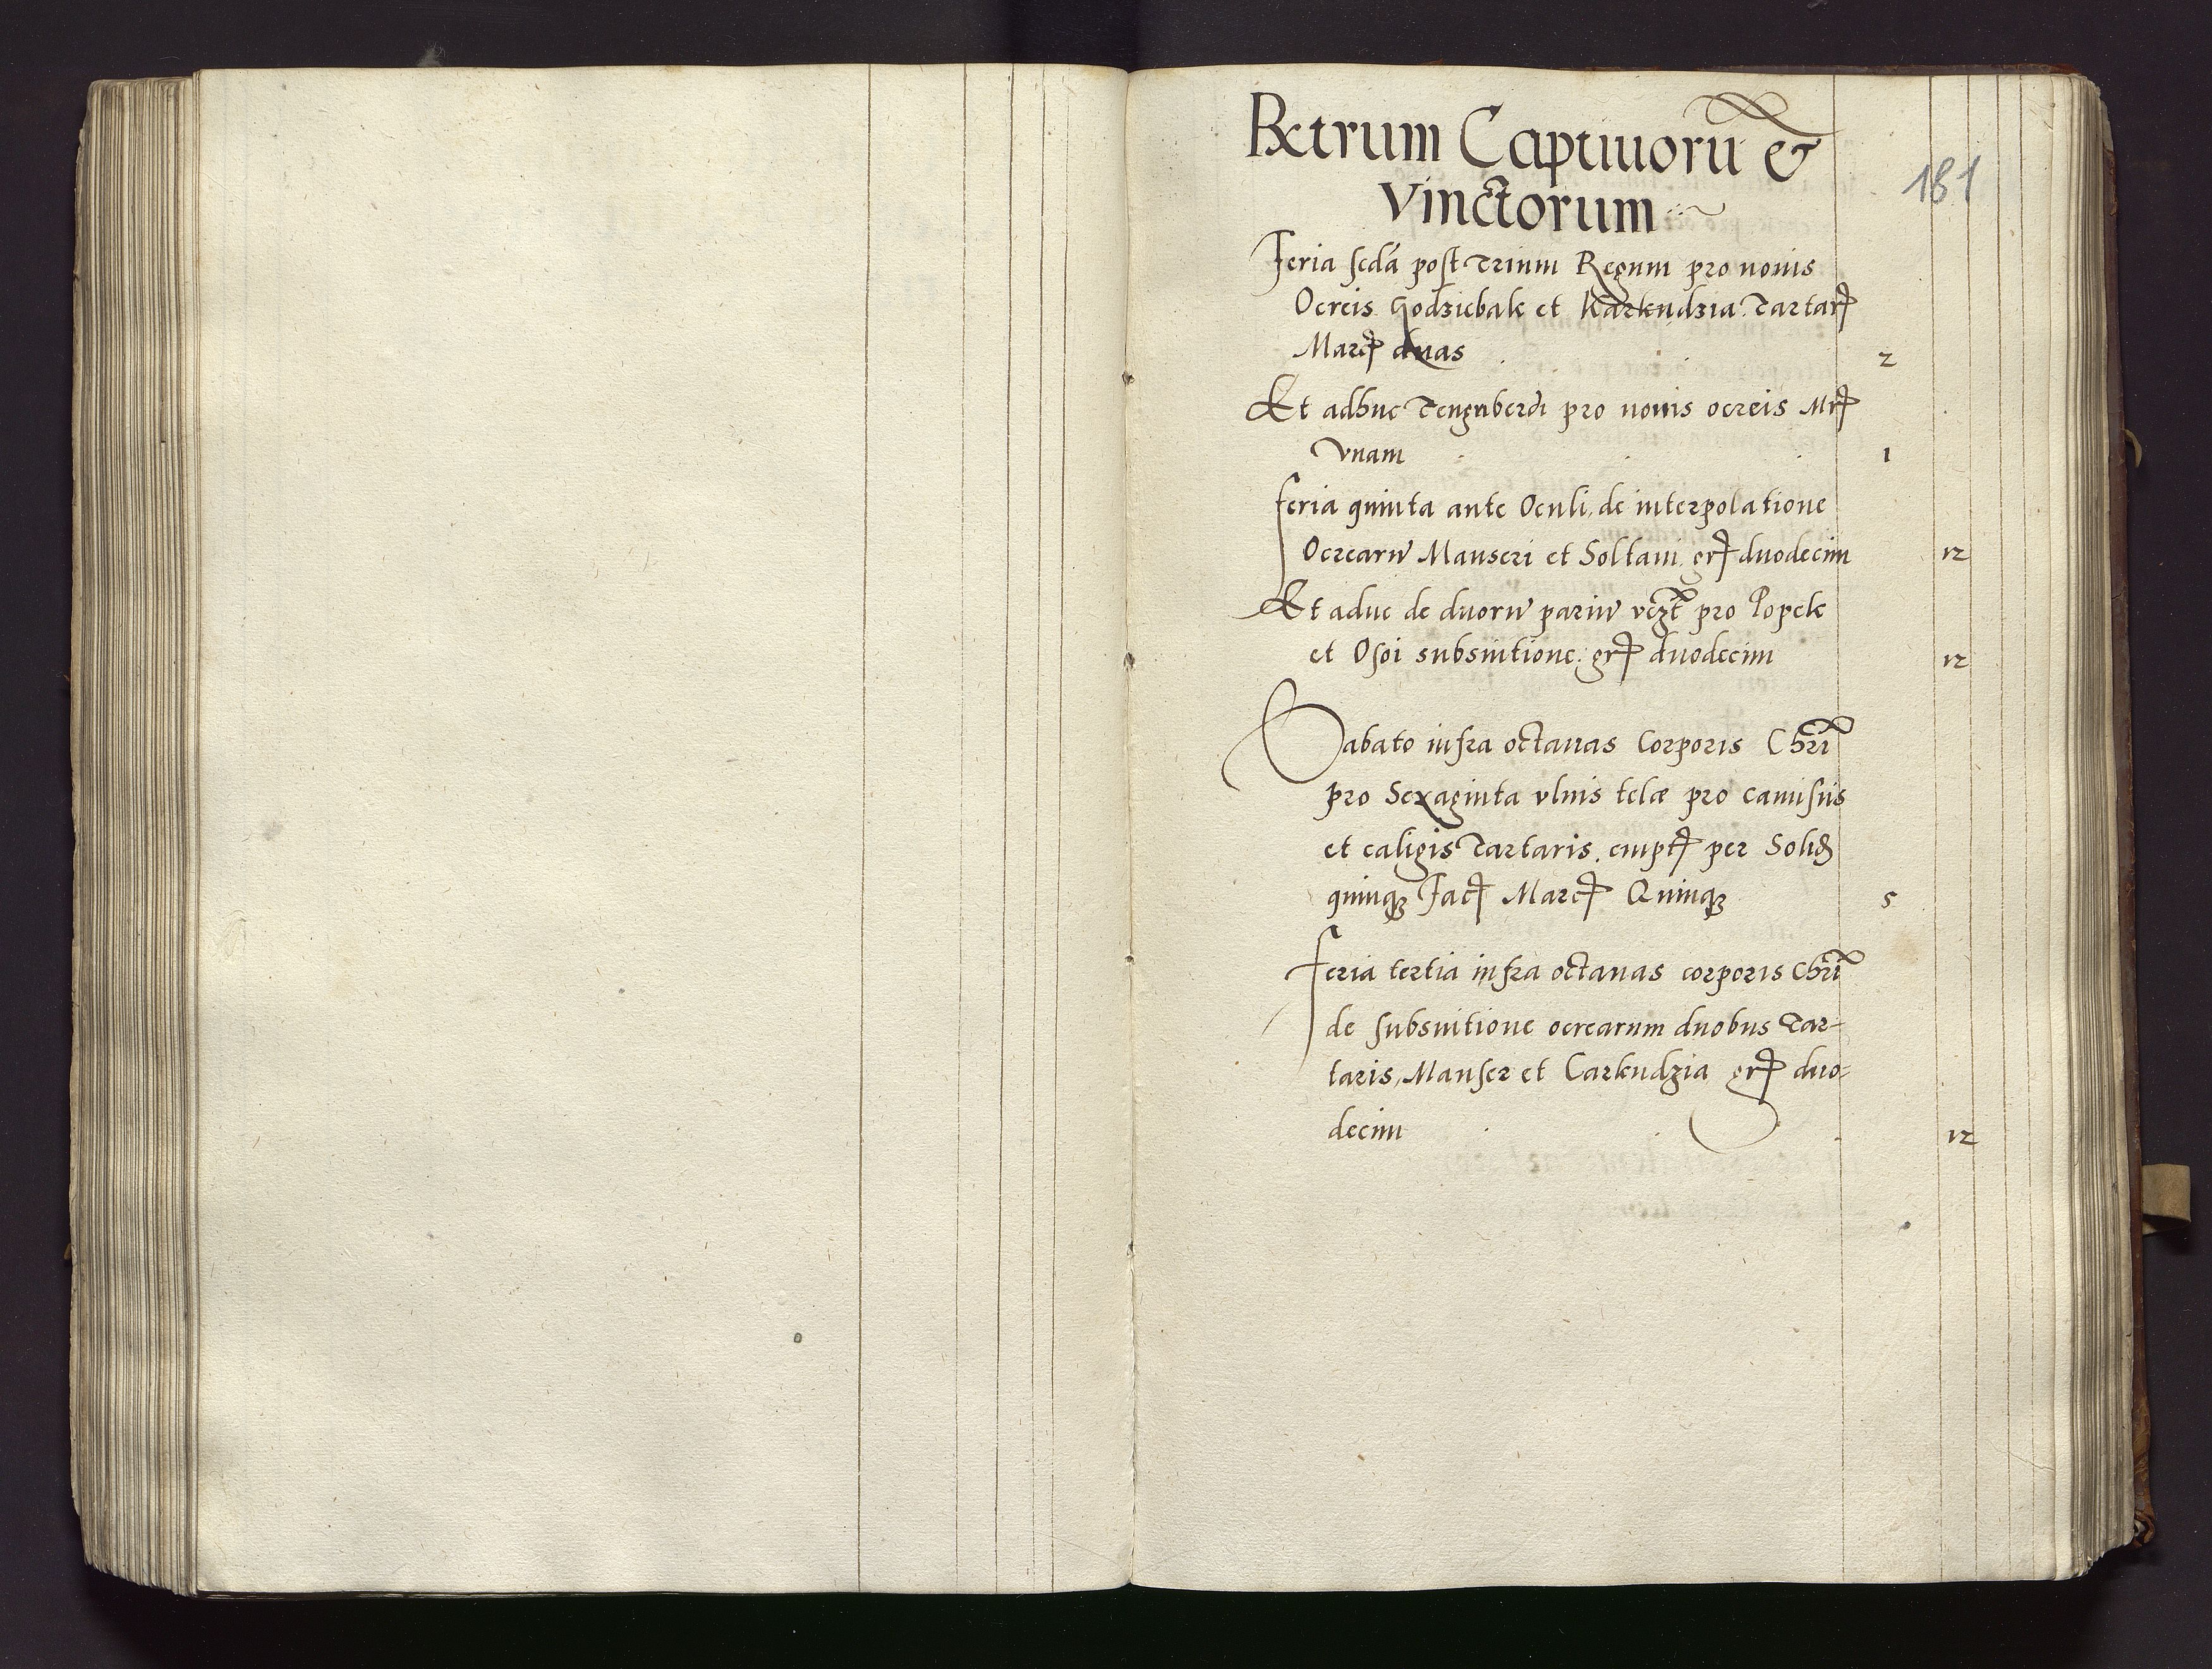 Rctrum Captiuorū &
Vinctorum
181
Feria scdā post Trium Regum pro nouis
Ocreis Godziebale et Karkudzia Tartar
Marc duas 2
Et adhuc Tenguberdi pro nouis ocreis Mr
vnam 1
feria quinta ante Oculi, de interpolatione
Ocrearū Manseri et Soltani gr duodecim 12
Et aduc de duorū pariū pro Popek
et Osoi subsuitione, gr duodecim 12
Sabato infra octauas Corporis Chri
pro Sexaginta vlnis telæ pro camisiis
et caligis Tartaris. empt per Solid
quinq Fac Marc Quinq 5
feria tertia infra octauas corporis Chri
de subsuitione ocrearum duobus Tar-
taris, Manser et Carkudzia gr duo=
decim 12